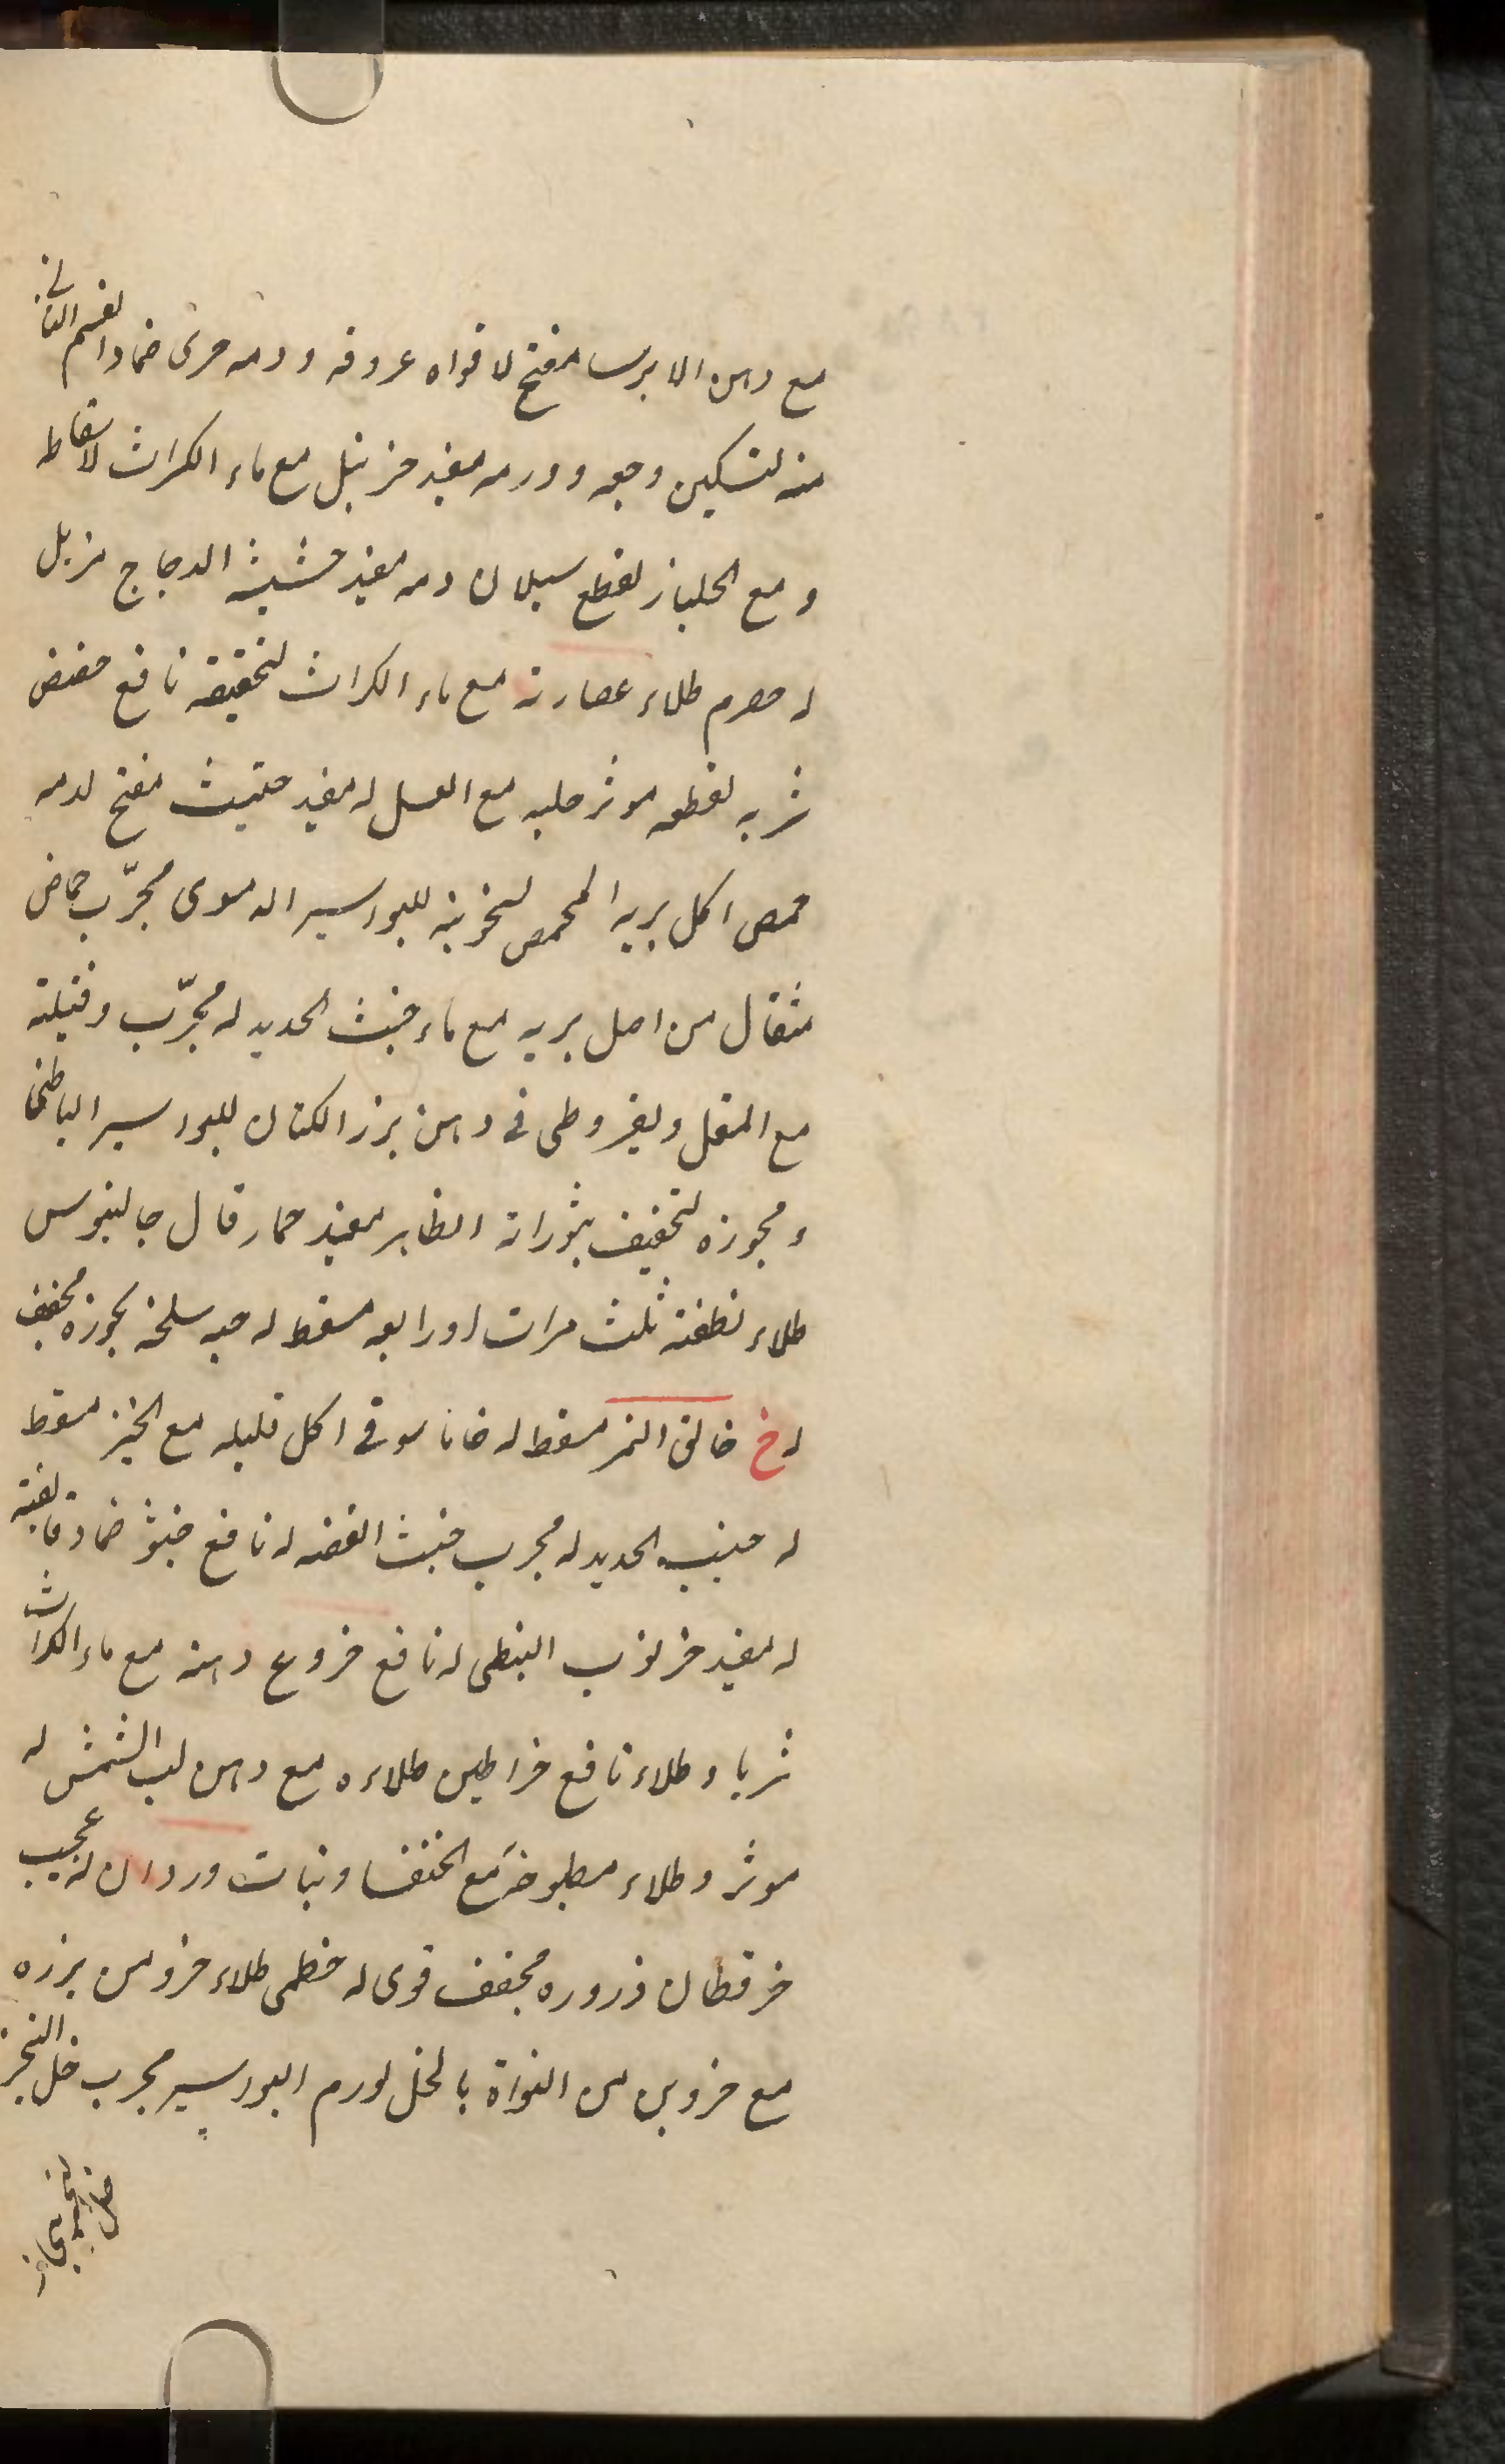 مع دهن الايرسا مفتح لافواه عروقه ودمه حرى ضماد القسم الثانى
منه لتسكين وجعه وورمه مفيد حزنبل مع ماء الكراث لاسقاطه
و مع الجلباز لقطع سيلان دمه مفيد حشيشه الدجاج مزيل
له حصرم طلاء عصارته مع ماء الكراث لتخفيفه نافع حضض
شربه لقطعه موثر حلبه مع العسل له مفيد حلتيت مفتح لدمه
حمص اكل بريه المحمص للبواسير الدموى مجرّب حماض
مثقال من اصل بريه مع ماء خبث الحديد له مجرّب وفتيلته
مع المقل وقيروطى فى دهن بزر الكتان للبواسير الباطنى
و بخوره لتخفيف بثوراته الظاهر مفيد حمار قال جالينوس
طلاء ثلث مرات او رابعه مسقط له حيه سلخه بخوره مجفف
له خ خانق النمر مسقط له اكل قليله مع الخبز مسقط
له خبث الحديد له مجرب خبث الفضه له نافع خبثو ضماد
له مفيد خرنوب النبطى له نافع خروع دهنه مع ماء الكراث
شربا و طلاء نافع خراطين طلاءه مع دهن لب المشمش له
موثر و طلاء مطبوخه مع الخنفسا وبنات وردان له عجيب
خرقطان ذروره مجفف قوى له خطمى طلاء جزو من بزره
مع جزوين من النواة بالخل لورم البواسير مجرب خل الخمر